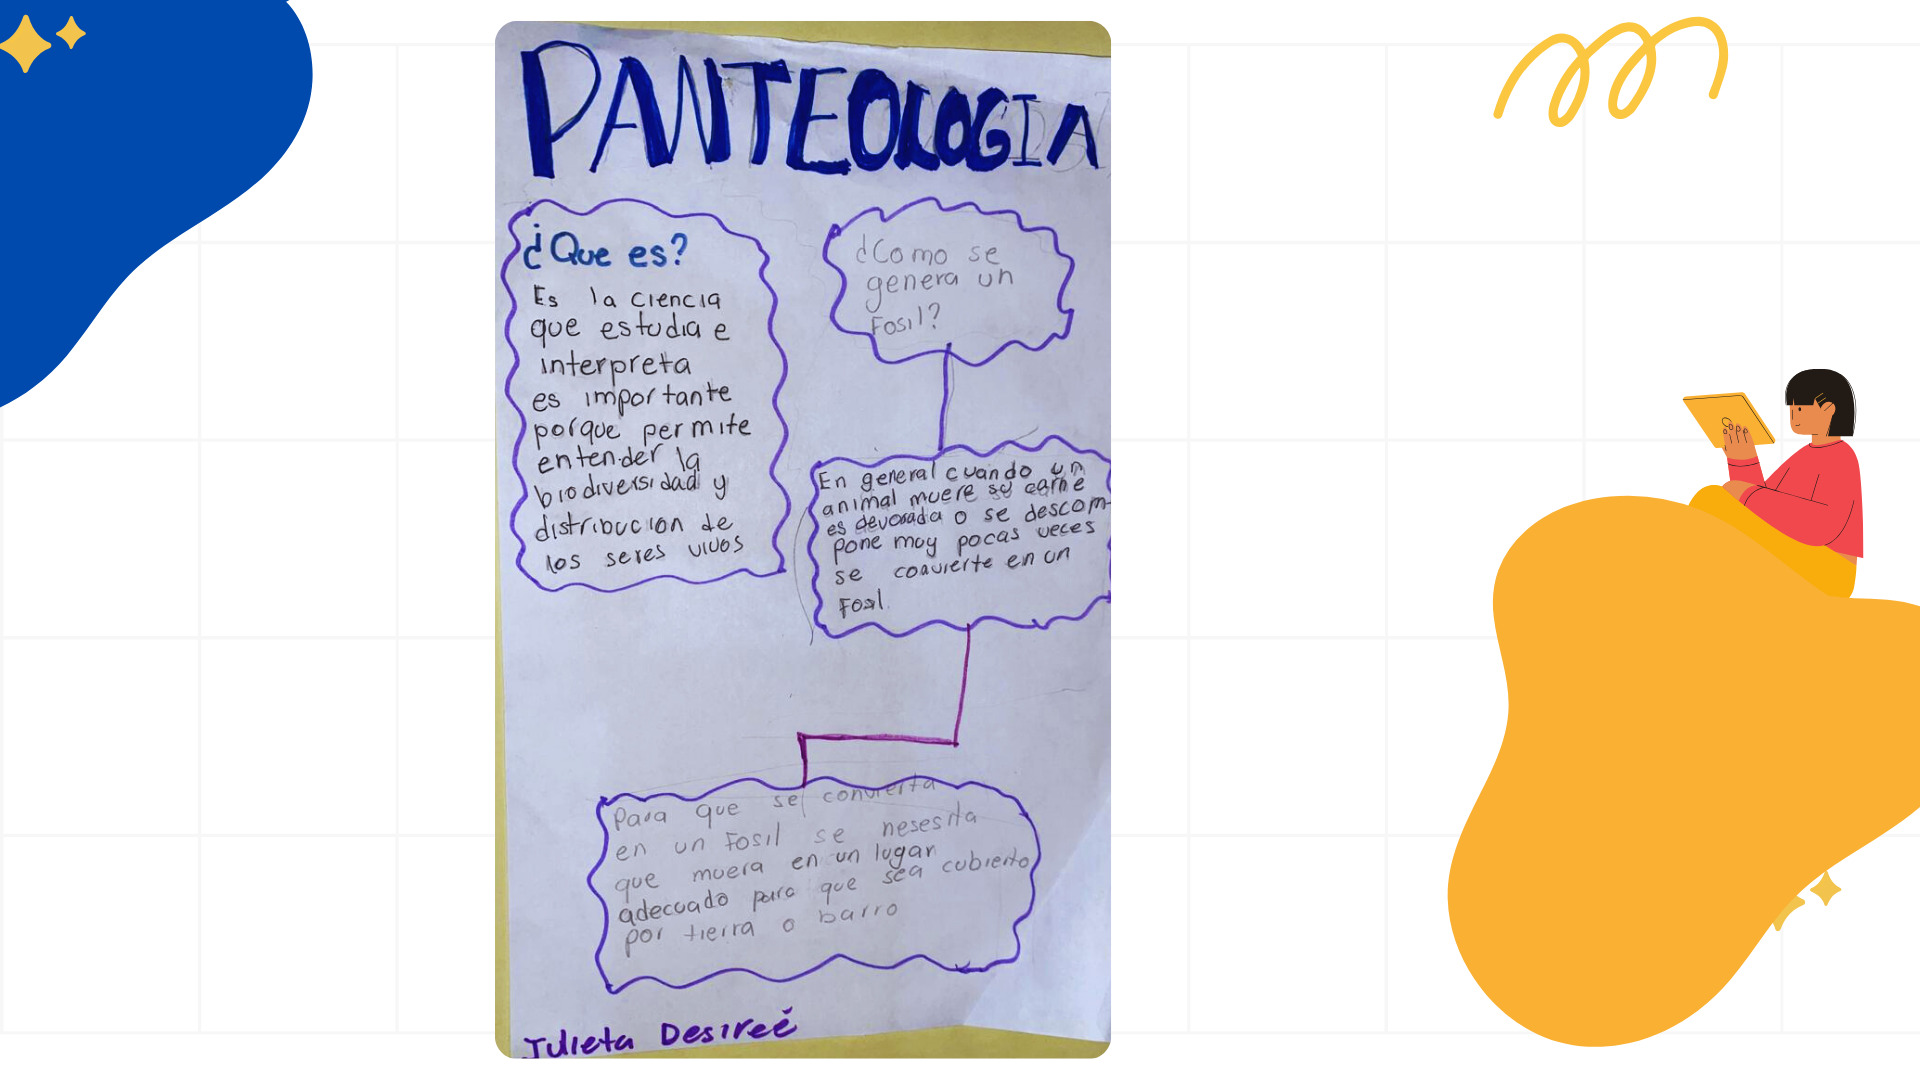 PANTEOLOGIA
¿Que es?
Es la ciencia
que estudia e
interpreta
es importante
porque permite
entender la
biodiversidad y
distribucion de
los seres vivos
¿Como se
genera un
Fosil?
En general cuando un
animal muere su carne
es devorada o se descom-
pone muy pocas veces
se convierte en un
Fosil.
Para que se convierta
en un Fosil se nesesita
que muera en un lugar
adecuado para que sea cubierto
por tierra o barro
Julieta Desireé